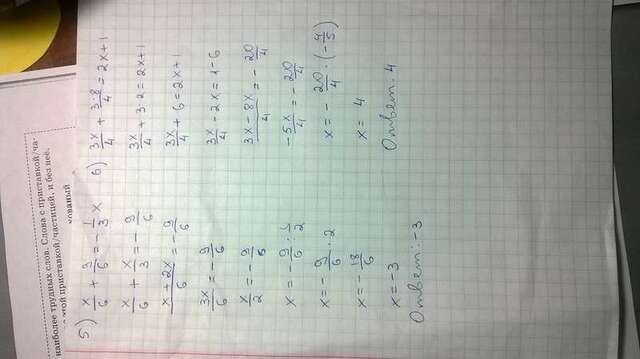 наиболее трудных слов. Слова с приставкой/ча-
этой приставкой/частицей, и без неё.
5) x/6 + 9/6 = -1/3 x
x/6 + x/3 = -9/6
(x+2x)/6 = -9/6
3x/6 = -9/6
x/2 = -9/6
x = -9/6 : 1/2
x = -9/6 · 2
x = -18/6
x = -3
Ответ: -3
6) 3x/4 + 3·8/4 = 2x+1
3x/4 + 3·2 = 2x+1
3x/4 + 6 = 2x+1
3x/4 - 2x = 1-6
(3x-8x)/4 = -20/4
-5x/4 = -20/4
x = -20/4 · (-4/5)
x = 4
Ответ: 4